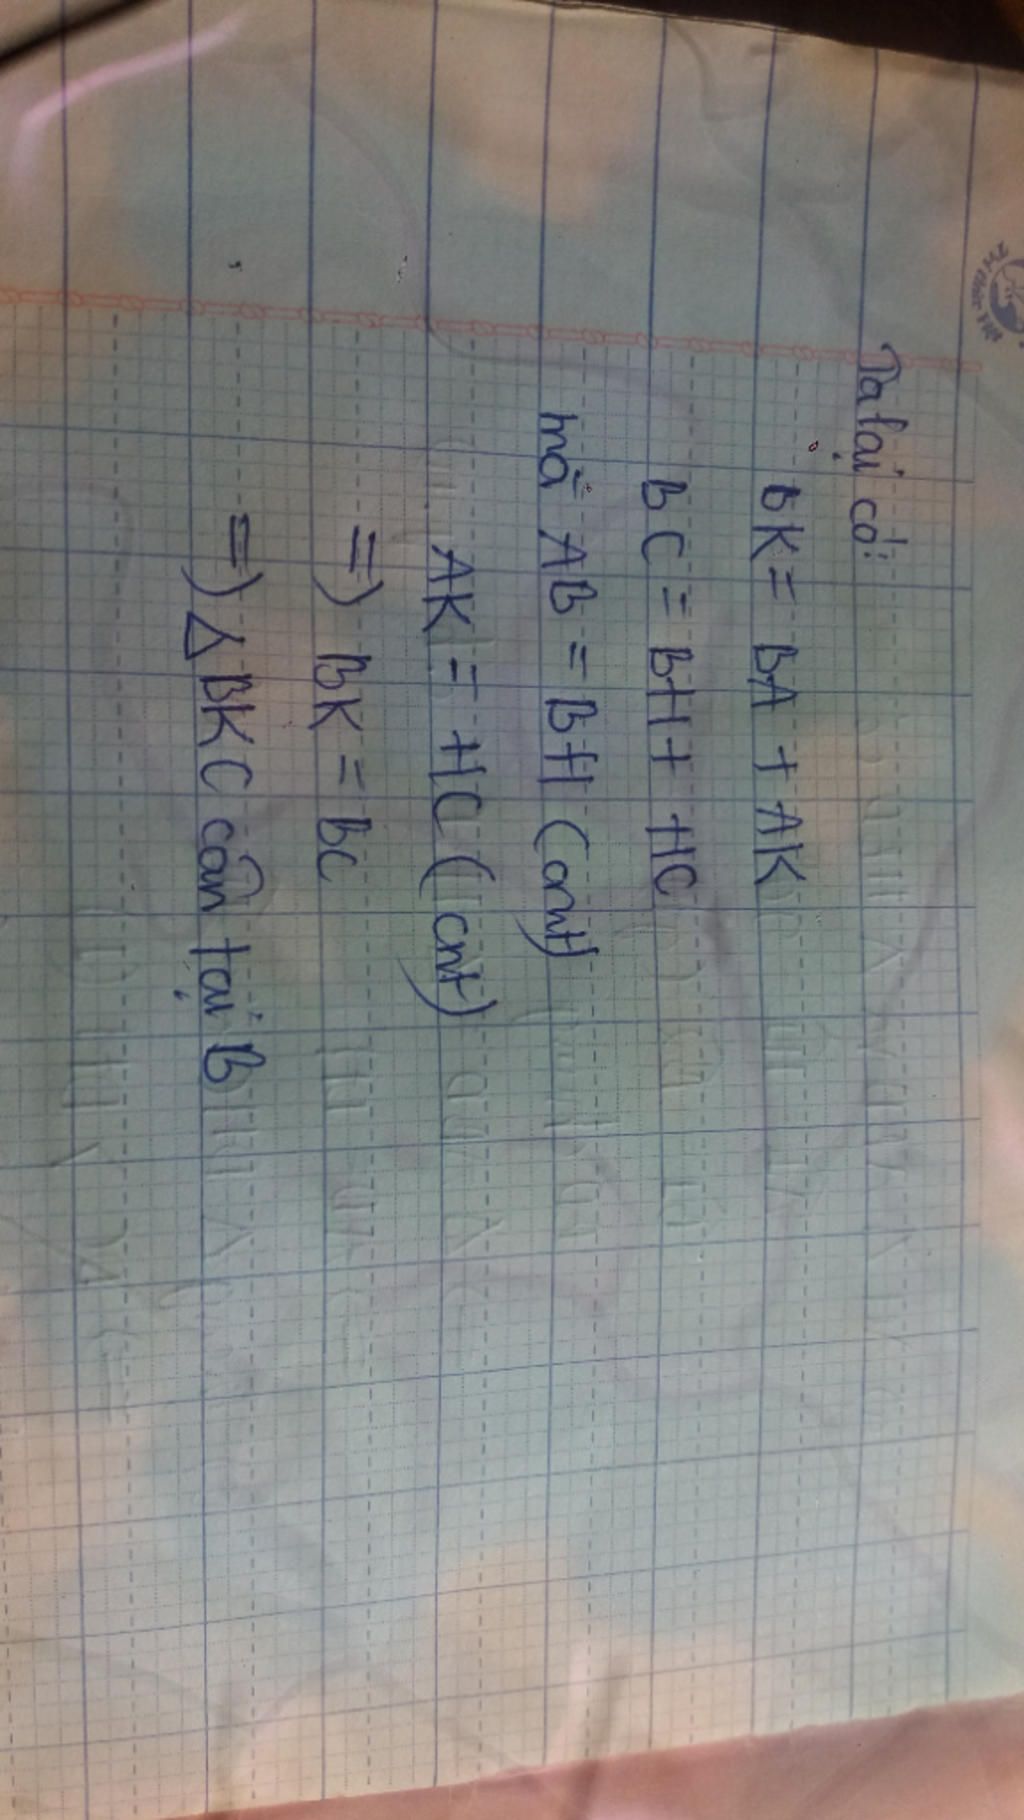 Ta lại có:
BK = BA + AK
BC = BH + HC
mà AB = BH (cmt)
AK = HC (cmt)
=) BK = BC
=) Δ BKC cân tại B